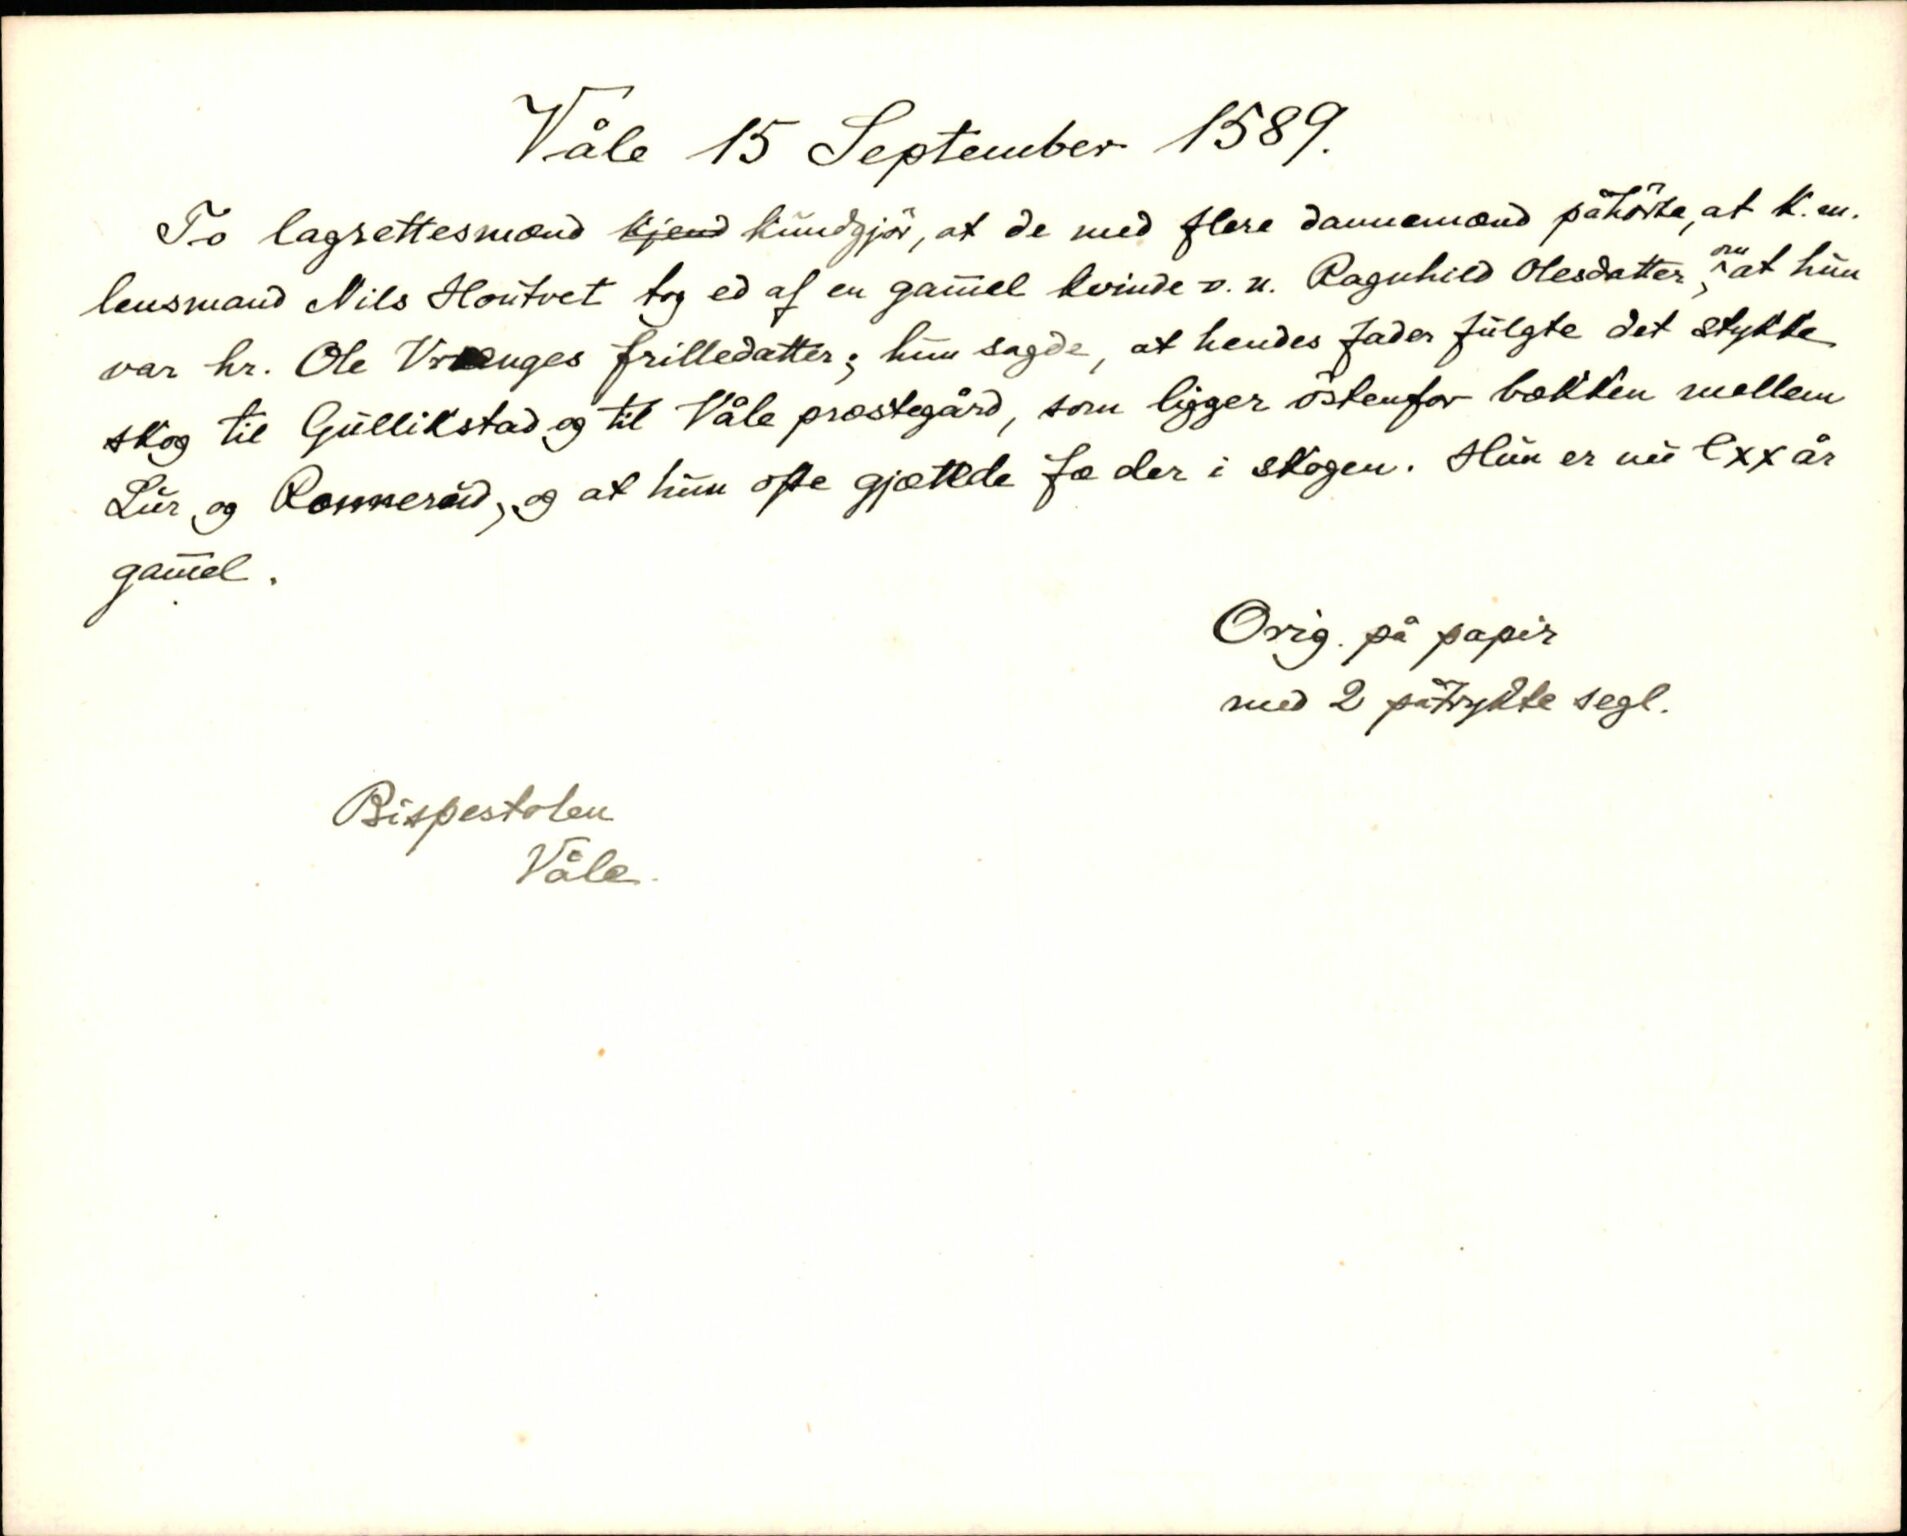 Våle 15 September 1589.
To lagrettesmænd kjend kundgjör, at de med flere dannemænd påhörte, at k. m.
lensmand Nils Houtvet tog ed af en gam̅el kvinde v. n. Ragnhild Olesdatter, om at hun
var hr. Ole Vrænges frilledatter; hun sagde, at hendes fader fulgte det stykke
skog til Gullikstad og til Våle præstegård, som ligger östenfor bækken mellem
Lur og Rønnerud, og at hun ofte gjætede fæ der i skogen. Hun er nu lxx år
gam̅el.
Orig. på papir
med 2 påtrykte segl.
Bispestolen
Våle.